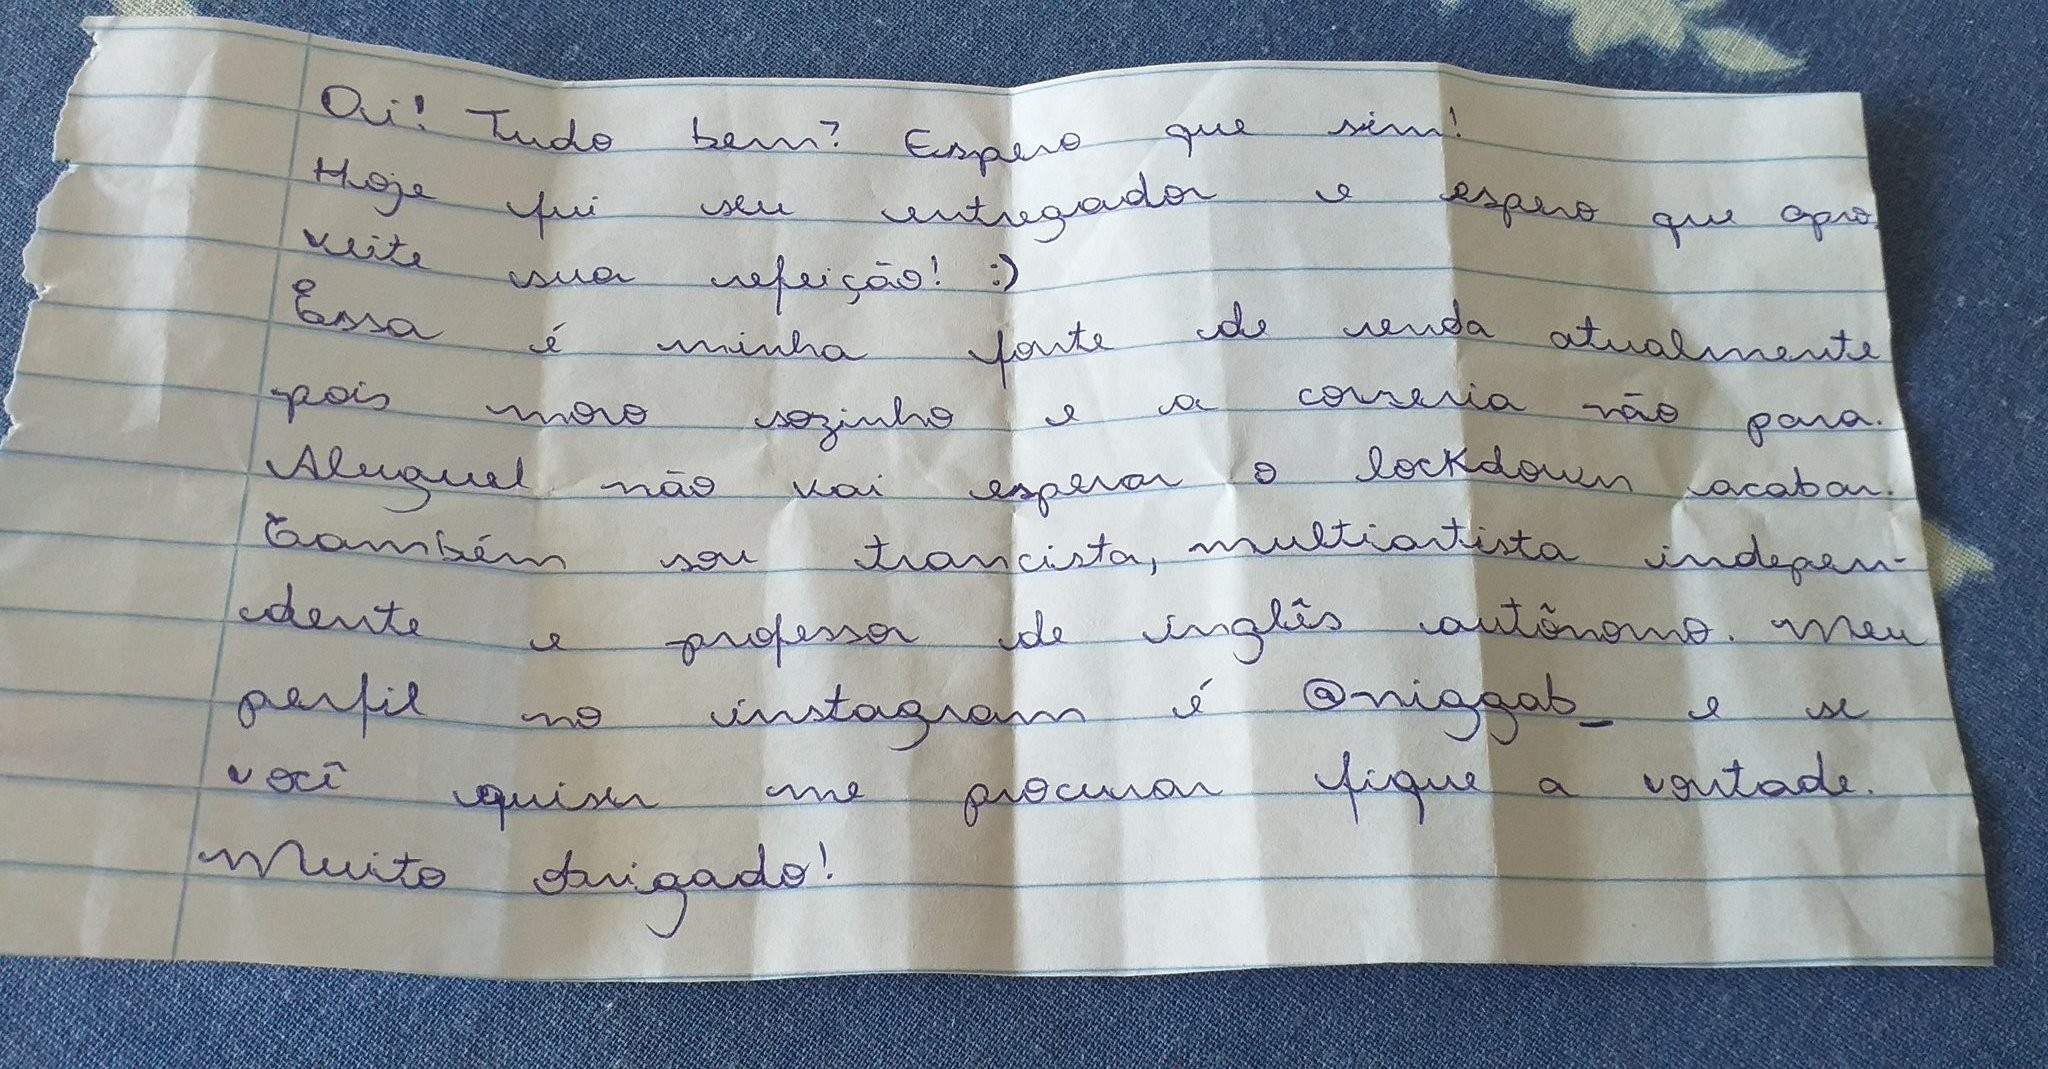 Oi! Tudo bem? Espero que sim!
Hoje fui seu entregador e espero que apro
veite sua refeição! :)
Essa é minha fonte de renda atualmente
pois moro sozinho e a correria não para.
Aluguel não vai esperar o lockdown acabar.
Também sou trancista, multiartista indepen-
dente e professor de inglês autônomo. Meu
perfil no instagram é @niggab_ e se
você quiser me procurar fique a vontade.
Muito obrigado!